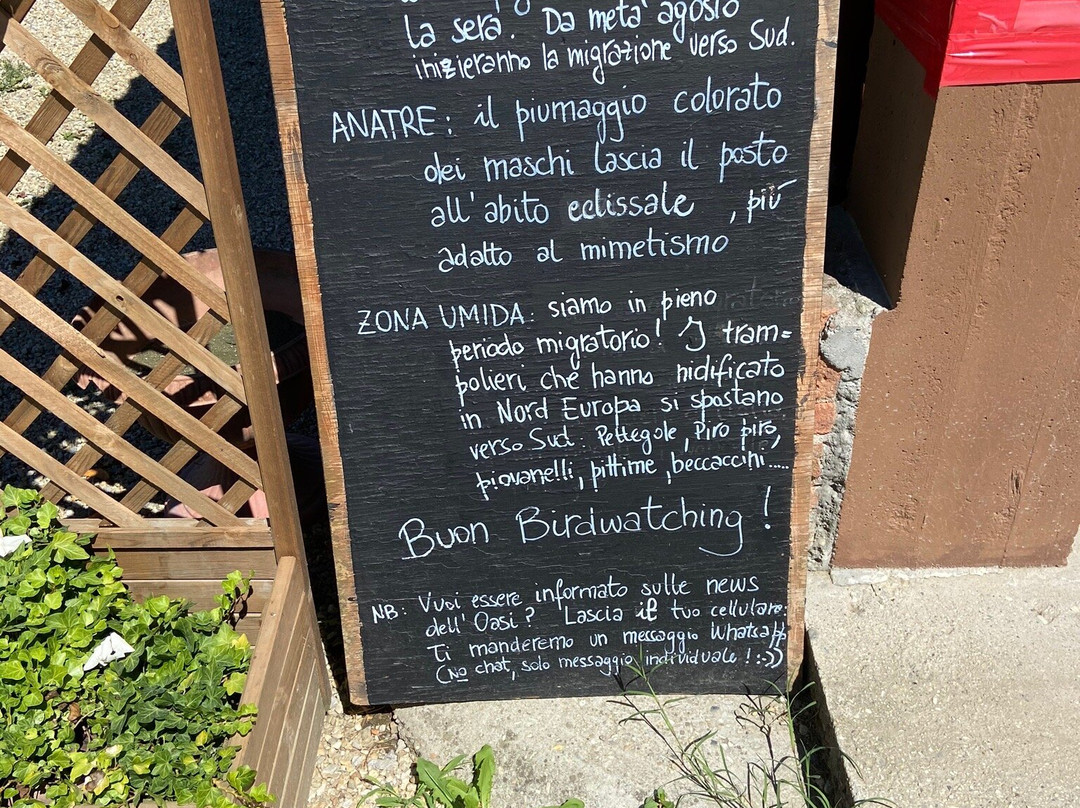 la sera. Da metà agosto
inizieranno la migrazione verso Sud.
ANATRE: il piumaggio colorato
dei maschi lascia il posto
all'abito eclissale, più
adatto al mimetismo
ZONA UMIDA: siamo in pieno
periodo migratorio! I tram=
polieri che hanno nidificato
in Nord Europa si spostano
verso Sud: Pettegole, Piro piro,
piovanelli, pittime, beccaccini.....
Buon Birdwatching!
NB: Vuoi essere informato sulle news
dell'Oasi? Lascia il tuo cellulare:
Ti manderemo un messaggio Whatsapp
(No chat, solo messaggio individuale! :-))